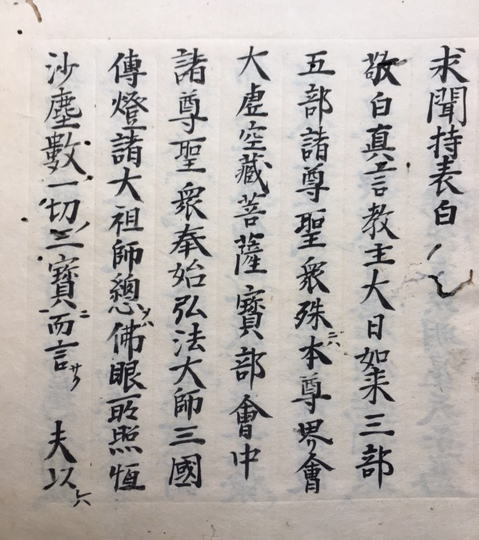 求聞持表白
敬白真言教主大日如来三部
五部諸尊聖衆殊ニハ本尊界會
大虚空藏菩薩寶部會中
諸尊聖衆奉始弘法大師三國
傳燈諸大祖師總シハ佛眼所照恆
沙塵數一切三寶ニ而言サク 夫以ハ